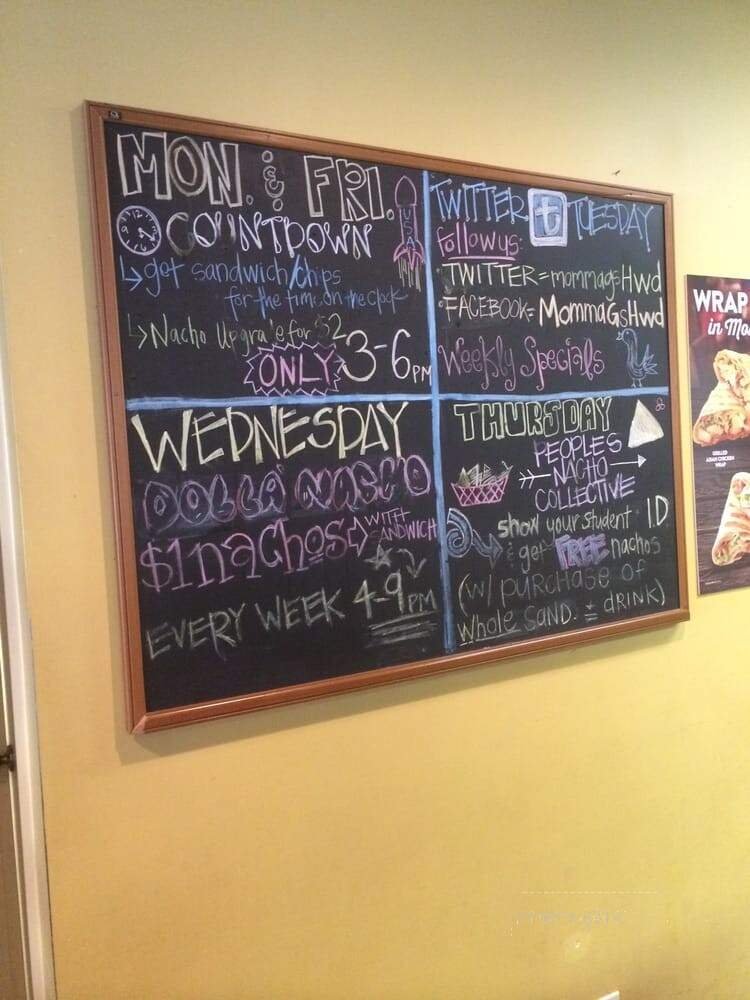 MON. & FRI.
COUNTDOWN
USA
get sandwich/chips
for the time on the clock
Nacho Upgrade for $2
ONLY 3-6PM
TWITTER t TUESDAY
follow us:
TWITTER=mommagsHwd
FACEBOOK=MommaGsHwd
Weekly Specials
WEDNESDAY
DOLLA NACHO
$1 nachos WITH
SANDWICH
EVERY WEEK 4-9PM
THURSDAY
PEOPLES
NACHO
COLLECTIVE
show your student I.D
& get FREE nachos
(w/ purchase of
whole sand. & drink)
WRAP
in Mo
GRILLED
ASIAN CHICKEN
WRAP